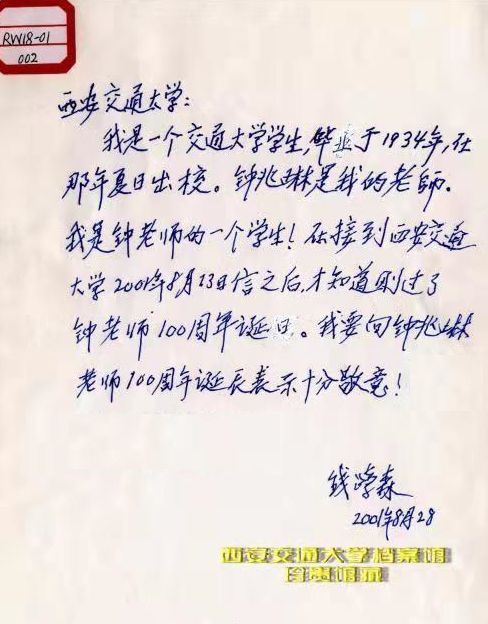 RW18-01
002
西安交通大学:
我是一个交通大学学生,毕业于1934年,在
那年夏日出校。钟兆琳是我的老師.
我是钟老师的一个学生!在接到西安交通
大学2001年8月23日信之后,才知道刚过了
钟老师100周年诞日。我要向钟兆琳
老师100周年诞辰表示十分敬意!
钱学森
2001年8月28
西安交通大学档案馆
珍贵馆藏